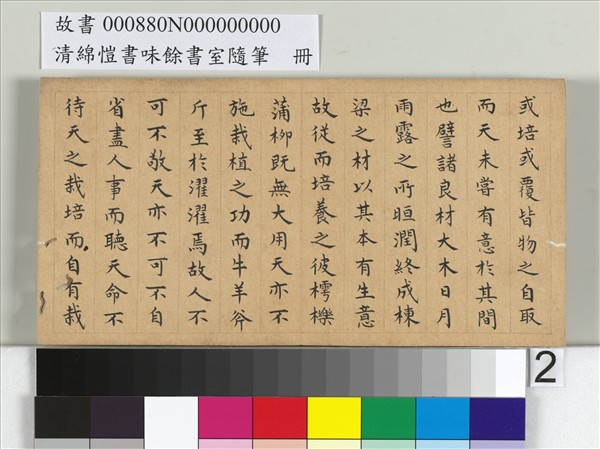 故書 000880N000000000
清綿愷書味餘書室隨筆 冊
或培或覆皆物之自取
而天未嘗有意於其間
也譬諸良材大木日月
雨露之所晅潤終成棟
梁之材以其本有生意
故從而培養之彼樗櫟
蒲柳既無大用天亦不
施栽植之功而牛羊斧
斤至於濯濯焉故人不
可不敬天亦不可不自
省盡人事而聽天命不
待天之栽培而自有栽
2